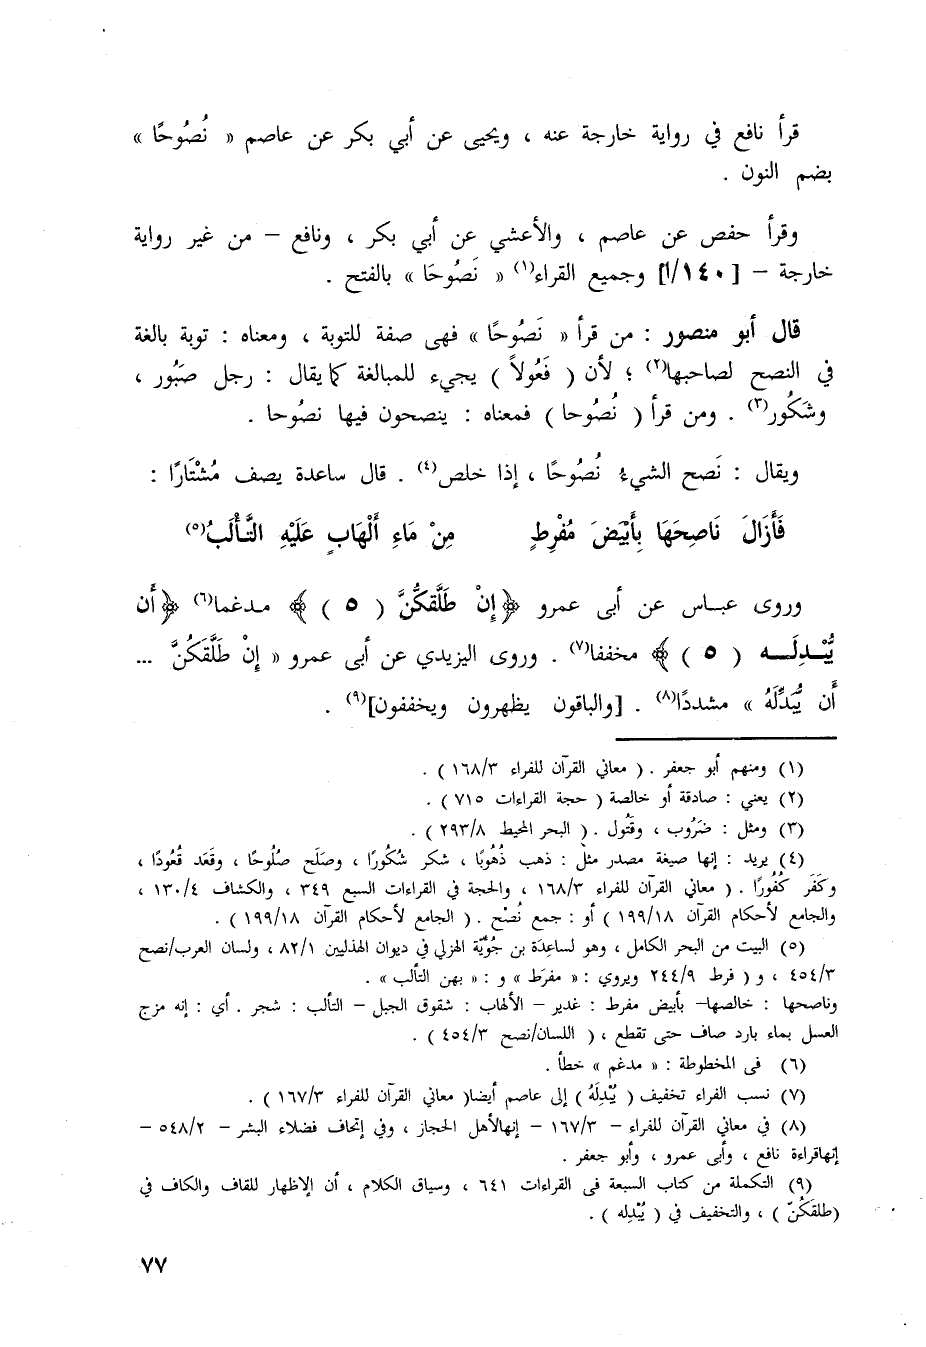 قرأ نافع في رواية خارجة عنه ، ويحيى عن أبي بكر عن عاصم « نُصُوحًا »
بضم النون .
وقرأ حفص عن عاصم ، والأعشي عن أبي بكر ، ونافع – من غير رواية
خارجة – [١/١٤٠] وجميع القراء(١) « نَصُوحَا » بالفتح .
قال أبو منصور : من قرأ « نَصُوحًا » فهى صفة للتوبة ، ومعناه : توبة بالغة
في النصح لصاحبها(٢) ؛ لأن ( فَعُولاً ) يجيء للمبالغة كما يقال : رجل صَبُور ،
وشَكُور(٣) . ومن قرأ ( نُصُوحا ) فمعناه : ينصحون فيها نصُوحا .
ويقال : نَصح الشيءُ نُصُوحًا ، إذا خلص(٤) . قال ساعدة يصف مُشْتَارًا :
فَأَزَالَ نَاصِحَهَا بِأَبْيَضَ مُفْرِطٍ مِنْ مَاءِ أَلْهَابٍ عَلَيْهِ التَّأْلَبُ(٥)
وروى عبـاس عن أبى عمرو ﴿إِنْ طَلَّقكُّنَّ ( ٥ ) ﴾ مدغما(٦) ﴿أَن
يُّبْـدِلَـــه ( ٥ ) ﴾ مخففا(٧) . وروى اليزيدي عن أبى عمرو « إِنْ طَلَّقَكُنَّ ...
أَن يُّبَدِّلَهُ » مشددًا(٨) . [والباقون يظهرون ويخففون](٩) .
(١) ومنهم أبو جعفر . ( معاني القرآن للفراء ١٦٨/٣ ) .
(٢) يعني : صادقة أو خالصة ( حجة القراءات ٧١٥ ) .
(٣) ومثل : ضَرُوب ، وقَتُول . ( البحر المحيط ٢٩٣/٨ ) .
(٤) يريد : إنها صيغة مصدر مثل : ذهب ذُهُوبًا ، شكر شُكُورًا ، وصَلَح صلُوحًا ، وقَعَد قُعُودًا ،
وكَفَر كُفُورًا . ( معاني القرآن للفراء ١٦٨/٣ ، والحجة في القراءات السبع ٣٤٩ ، والكشاف ١٣٠/٤ ،
والجامع لأحكام القرآن ١٩٩/١٨ ) أو : جمع نُصْح . ( الجامع لأحكام القرآن ١٩٩/١٨ ) .
(٥) البيت من البحر الكامل ، وهو لساعِدَة بن جُؤيَّة الهزلي في ديوان الهذليين ٨٢/١ ، ولسان العرب/نصح
٤٥٤/٣ ، و ( فرط ٢٤٤/٩ ويروي : « مفرَط » و : « بهن التألب » .
وناصحها : خالصها– بأبيض مفرط : غدير – الألهاب : شقوق الجبل – التألب : شجر . أي : إنه مزج
العسل بماء بارد صاف حتى تقطع ، ( اللسان/نصح ٤٥٤/٣ ) .
(٦) فى المخطوطة : « مدغم » خطأ .
(٧) نسب الفراء تخفيف ( يُبْدِلَهُ ) إلى عاصم أيضا( معاني القرآن للفراء ١٦٧/٣ ) .
(٨) في معاني القرآن للفراء – ١٦٧/٣ – إنهالأهل الحجاز ، وفي إتحاف فضلاء البشر – ٥٤٨/٢ –
إنهاقراءة نافع ، وأبى عمرو ، وأبو جعفر .
(٩) التكملة من كتاب السبعة فى القراءات ٦٤١ ، وسياق الكلام ، أن الإظهار للقاف والكاف في
(طلقَكُنّ ) ، والتخفيف في ( يُبْدِله ) .
٧٧